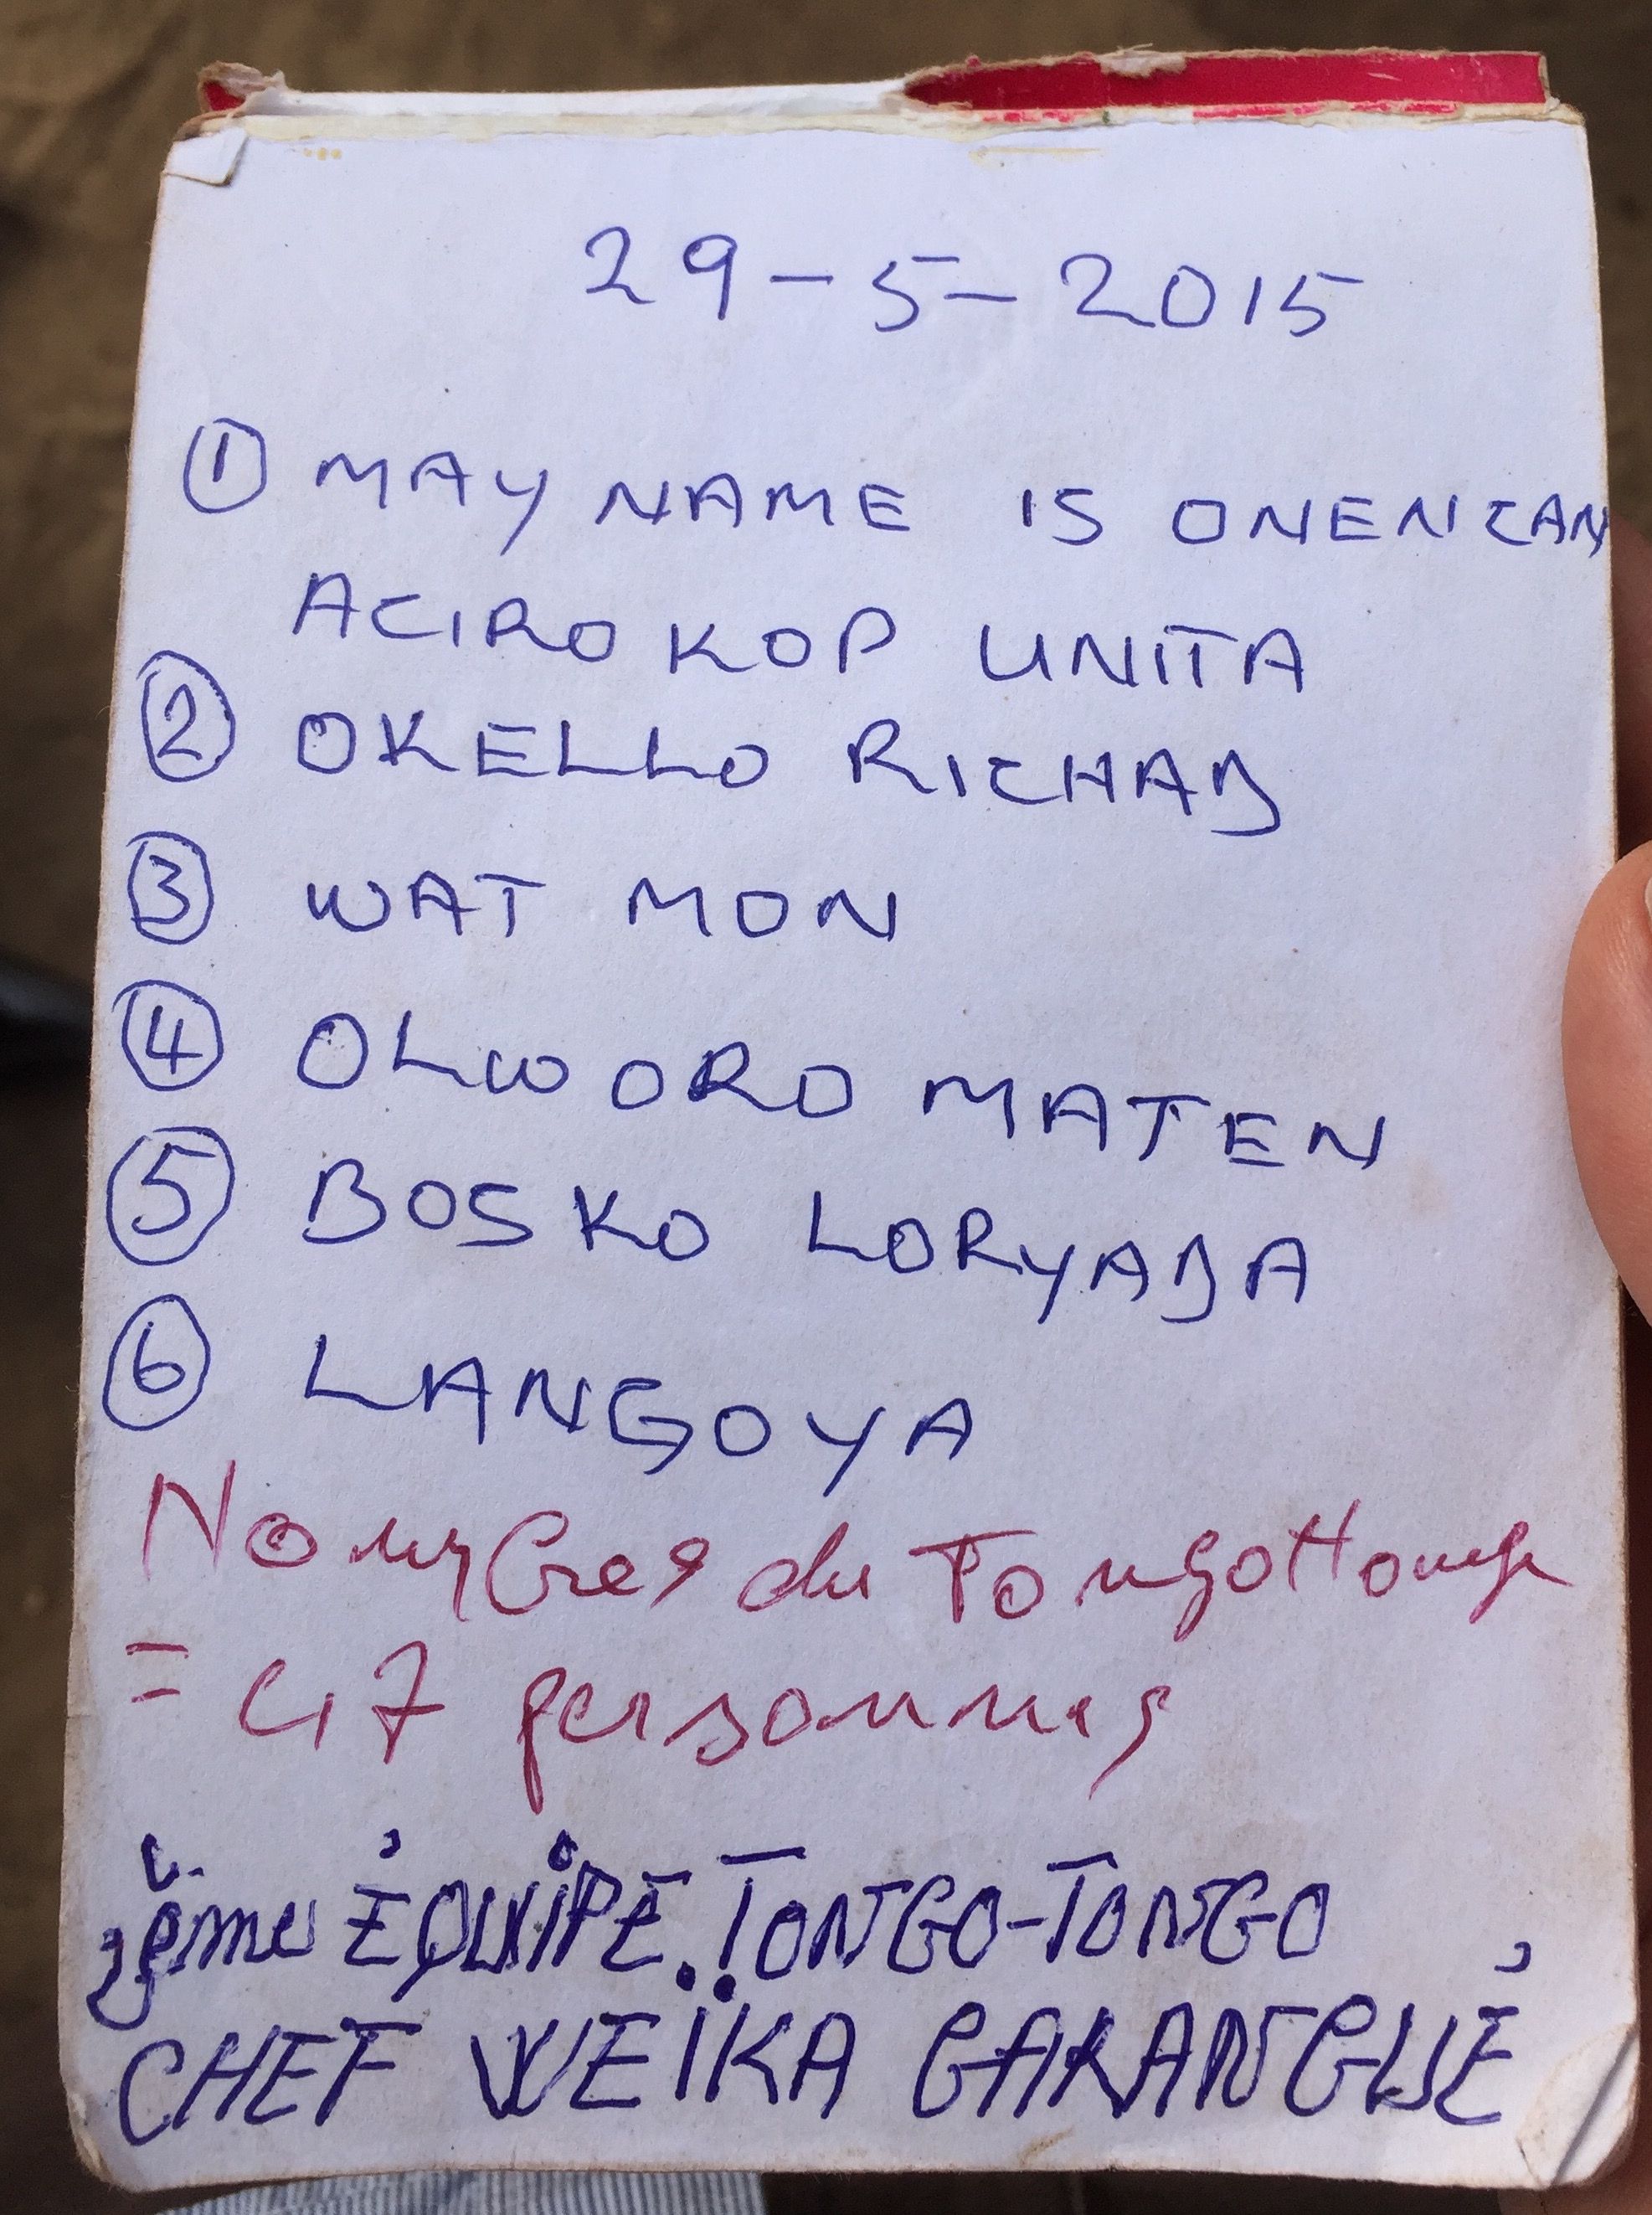 29-5-2015
① MAY NAME IS ONENCAN
ACIRO KOP UNITA
② OKELLO RICHAD
③ WAT MON
④ OLWORO MATEN
⑤ BOSKO LORYADA
⑥ LANGOYA
Nombres du Tongo
= 47 personnes
2ème ÉQUIPE. TONGO-TONGO
CHEF WEÏKA